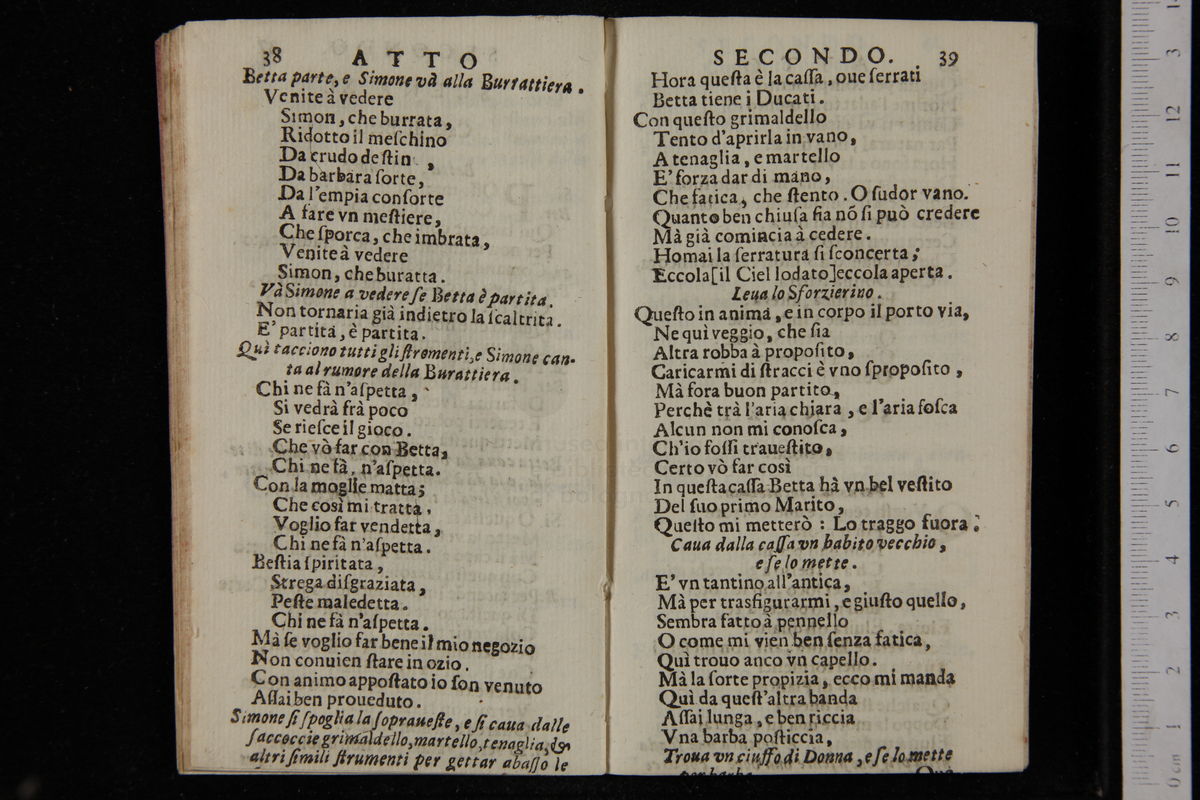 38 ATTO
Betta parte, e Simone và alla Burrattiera.
Venite à vedere
Simon, che burrata,
Ridotto il meſchino
Da crudo deſtin,
Da barbara ſorte,
Da l'empia conſorte
A fare vn meſtiere,
Che ſporca, che imbrata,
Venite à vedere
Simon, che buratta.
Và Simone a vedere ſe Betta è partita.
Non tornaria già indietro la ſcaltrita.
E' partita, è partita.
Quì tacciono tutti gli ſtromenti, e Simone can-
ta al rumore della Burattiera.
Chi ne fà n'aſpetta,
Si vedrà frà poco
Se rieſce il gioco.
Che vò far con Betta,
Chi ne fà, n'aſpetta.
Con la moglie matta;
Che così mi tratta,
Voglio far vendetta,
Chi ne fà n'aſpetta.
Beſtia ſpiritata,
Strega diſgraziata,
Peſte maledetta.
Chi ne fà n'aſpetta.
Mà ſe voglio far bene il mio negozio
Non conuien ſtare in ozio.
Con animo appoſtato io ſon venuto
Aſſai ben proueduto.
Simone ſi ſpoglia la ſoprauesſte, e ſi caua dalle
ſaccoccie grimaldello, martello, tenaglia, &
altri ſimili ſtrumenti per gettar abaſſo le
SECONDO. 39
Hora queſta è la caſſa, oue ſerrati
Betta tiene i Ducati.
Con queſto grimaldello
Tento d'aprirla in vano,
A tenaglia, e martello
E' forza dar di mano,
Che fatica, che ſtento. O ſudor vano.
Quanto ben chiuſa ſia nõ ſi può credere
Mà già comincia à cedere.
Homai la ſerratura ſi ſconcerta;
Eccola[il Ciel lodato]eccola aperta.
Leua lo Sforzierino.
Queſto in anima, e in corpo il porto via,
Ne quì veggio, che ſia
Altra robba à propoſito,
Caricarmi di ſtracci è vno ſpropoſito,
Mà fora buon partito,
Perchè trà l'aria chiara, e l'aria foſca
Alcun non mi conoſca,
Ch'io foſſi traueſtito,
Certo vò far così
In queſta caſſa Betta hà vn bel veſtito
Del ſuo primo Marito,
Queſto mi metterò : Lo traggo fuora.
Caua dalla caſſa vn habito vecchio,
e ſe lo mette.
E' vn tantino all'antica,
Mà per trasfigurarmi, e giuſto quello,
Sembra fatto à pennello
O come mi vien ben ſenza fatica,
Quì trouo anco vn capello.
Mà la ſorte propizia, ecco mi manda
Quì da queſt'altra banda
Aſſai lunga, e ben riccia
Vna barba poſticcia,
Troua vn ciuffo di Donna, e ſe lo mette
per barba. Quà